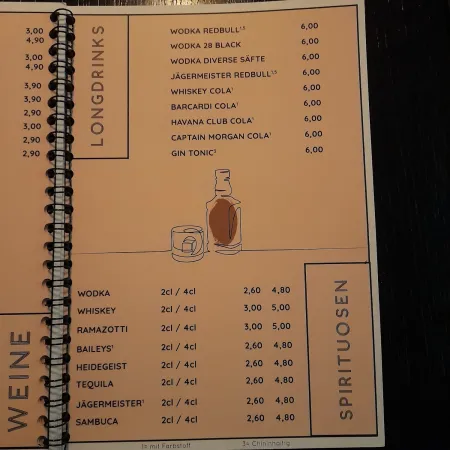 3,00
4,90
3,00
4,90
3,90
3,90
2,90
3,00
2,90
2,90
WEINE
LONGDRINKS
WODKA REDBULL 6,00
WODKA 28 BLACK 6,00
WODKA DIVERSE SÄFTE 6,00
JÄGERMEISTER REDBULL 6,00
WHISKEY COLA¹ 6,00
BARCARDI COLA¹ 6,00
HAVANA CLUB COLA¹ 6,00
CAPTAIN MORGAN COLA¹ 6,00
GIN TONIC³ 6,00
WODKA 2cl / 4cl 2,60 4,80
WHISKEY 2cl / 4cl 3,00 5,00
RAMAZOTTI 2cl / 4cl 3,00 5,00
BAILEYS¹ 2cl / 4cl 2,60 4,80
HEIDEGEIST 2cl / 4cl 2,60 4,80
TEQUILA 2cl / 4cl 2,60 4,80
JÄGERMEISTER¹ 2cl / 4cl 2,60 4,80
SAMBUCA 2cl / 4cl 2,60 4,80
SPIRITUOSEN
1= mit Farbstoff 3= Chininhaltig